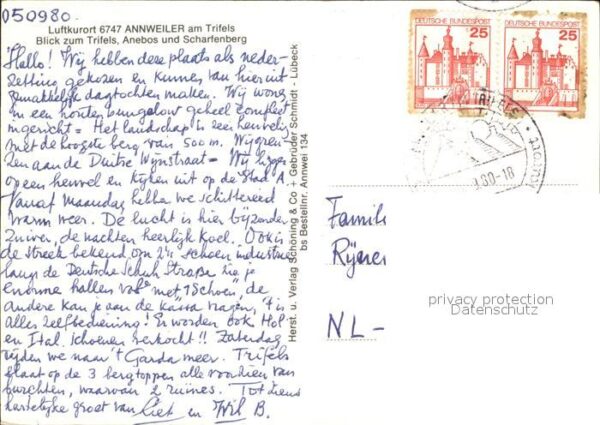 050980.
Luftkurort 6747 ANNWEILER am Trifels
Blick zum Trifels, Anebos und Scharfenberg
Hallo! Wij hebben deze plaats als neder-
zetting gekozen en kunnen van hieruit
gemakkelijk dagtochten maken. Wij wonen
in een houten bungalow geheel compleet
ingericht = Het landschap is zeer heuvelig
met de hoogste berg van 500 m. Wij
aan de Duitse Wijnstraat = Wij
op een heuvel en kijken uit op de stad A.
Vanaf Maandag hebben we schitterend
warm weer. De lucht is hier bijzonder
zuiver, de nachten heerlijk koel. Ook is
de streek bekend om z'n schoen industrie
langs de Deutsche Schuh Straße zie je
enorme hallen vol met "1 Schoen", de
andere kan je aan de kassa vragen, 't is
alles zelfbediening! Er worden ook Hol
en Ital. schoenen verkocht!! Zaterdag
rijden we naar 't Garda meer. Trifels
slaat op de 3 bergtoppen alle voorzien van
burchten, waarvan 2 ruïnes. Tot ziens
hartelijke groet van Riet en Wil B.
Herst. u. Verlag Schöning & Co + Gebrüder Schmidt - Lübeck
bs Bestellnr. Annwei 134
DEUTSCHE BUNDESPOST
25
DEUTSCHE BUNDESPOST
25
TRIFELS
80-18
Familie
Rijner
NL-
privacy protection
Datenschutz